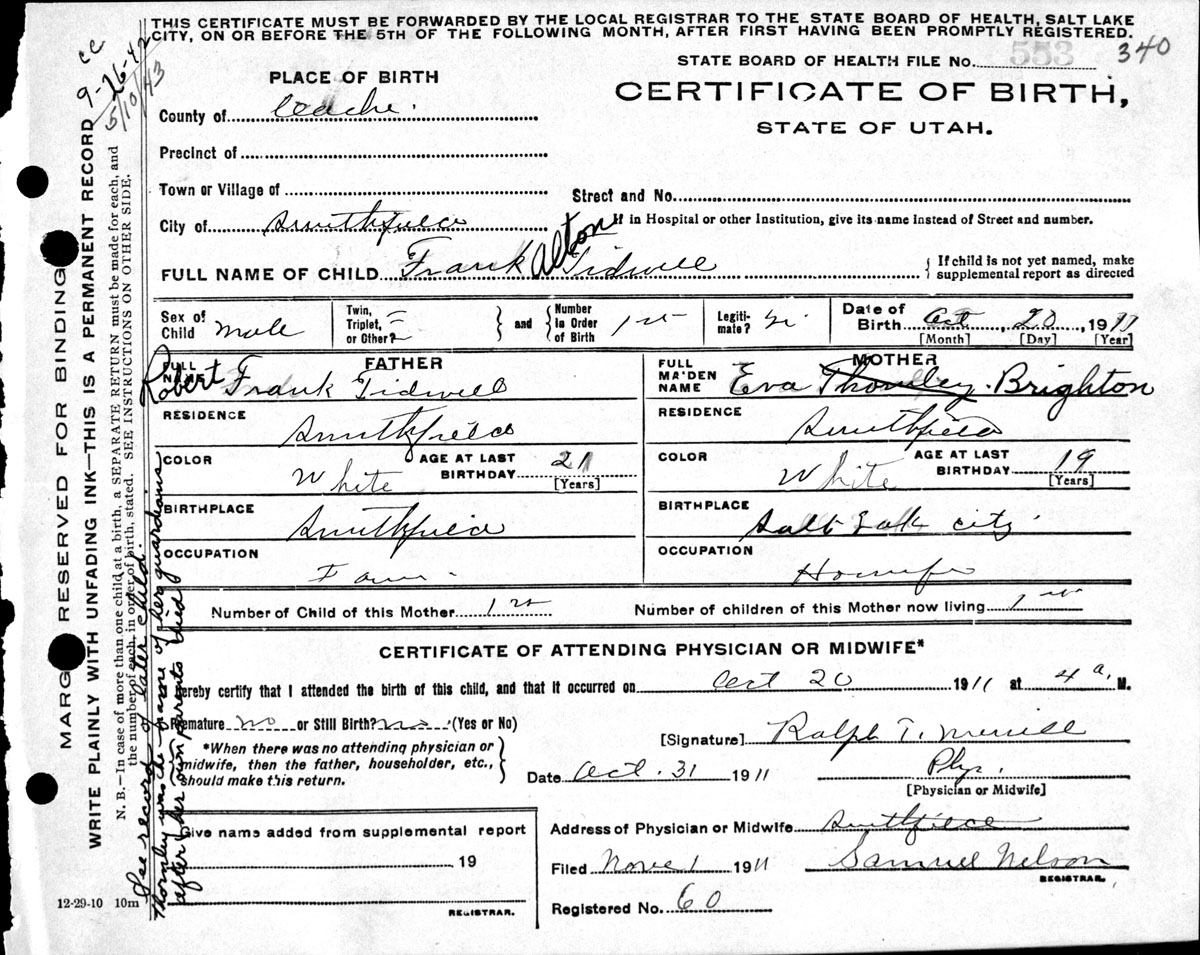 THIS CERTIFICATE MUST BE FORWARDED BY THE LOCAL REGISTRAR TO THE STATE BOARD OF HEALTH, SALT LAKE
CITY, ON OR BEFORE THE 5TH OF THE FOLLOWING MONTH, AFTER FIRST HAVING BEEN PROMPTLY REGISTERED.
STATE BOARD OF HEALTH FILE No. 553 340
PLACE OF BIRTH
CERTIFICATE OF BIRTH,
STATE OF UTAH.
County of Cache.
Precinct of
Town or Village of
Street and No.
City of Smithfield
If in Hospital or other Institution, give its name instead of Street and number.
FULL NAME OF CHILD Frank Alton Tidwell
If child is not yet named, make
supplemental report as directed
Sex of Child Male
Twin, Triplet, or Other?
and
Number in Order of Birth 1st
Legiti-mate?
Date of Birth Oct, 20, 1911
[Month] [Day] [Year]
FATHER
FULL NAME Robert Frank Tidwell
RESIDENCE
Smithfield
COLOR White
AGE AT LAST BIRTHDAY 21 [Years]
BIRTHPLACE
Smithfield
OCCUPATION
Farm
MOTHER
FULL MAIDEN NAME Eva Thornley Brighton
RESIDENCE
Smithfield
COLOR White
AGE AT LAST BIRTHDAY 19 [Years]
BIRTHPLACE
Salt Lake City
OCCUPATION
Housewife
Number of Child of this Mother 1st Number of children of this Mother now living 1st
CERTIFICATE OF ATTENDING PHYSICIAN OR MIDWIFE*
hereby certify that I attended the birth of this child, and that it occurred on Oct 20 1911 at 4 a. M.
Premature no or Still Birth? no (Yes or No)
*When there was no attending physician or
midwife, then the father, householder, etc.,
should make this return.
[Signature] Ralph T. Merrill
Date Oct. 31 1911 Phy.
[Physician or Midwife]
Give name added from supplemental report
19
REGISTRAR.
Address of Physician or Midwife Smithfield
Filed Nov 1 1911 Samuel Nelson
REGISTRAR.
Registered No. 60
12-29-10 10m
MARG RESERVED FOR BINDING
WRITE PLAINLY WITH UNFADING INK—THIS IS A PERMANENT RECORD
N. B.—In case of more than one child at a birth, a SEPARATE RETURN must be made for each, and
the number of each, in order of birth, stated. SEE INSTRUCTIONS ON OTHER SIDE.
cc
9-26-42
5/10/43
See record of later child.
Thornley was the name of her guardians
after her own parents died